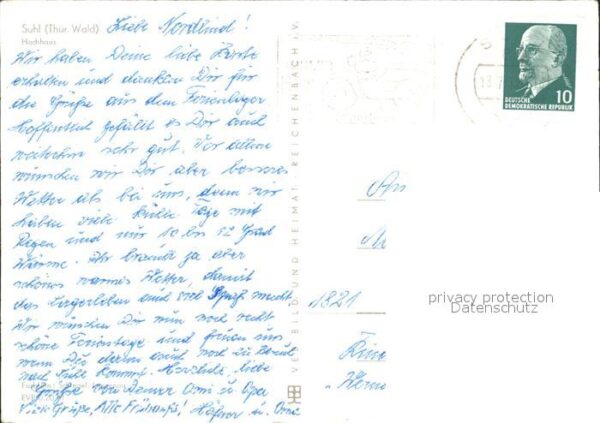 Suhl (Thür. Wald) Liebe Nordlind!
Hochhaus
Wir haben Deine liebe Karte
erhalten und danken Dir für
die Grüße aus dem Ferienlager
Hoffentlich gefällt es Dir auch
weiterhin sehr gut. Vor allem
wünschen wir Dir aber besseres
Wetter als bei uns, denn wir
haben viele kühle Tage mit
Regen und nur 10 bis 12 Grad
Wärme. Ihr braucht ja aber
schönes warmes Wetter, damit
das Lagerleben auch viel Spaß macht.
Wir wünschen Dir nun noch recht
schöne Ferientage und freuen uns
wenn Du dann auch noch zu Besuch
nach Suhl kommst. Herzliche, liebe
Grüße von Deiner Omi u. Opa
Viele Grüße,
VERLAG BILD UND HEIMAT REICHENBACH i.V.
DEUTSCHE
DEMOKRATISCHE REPUBLIK 10
An
1821
privacy protection
Datenschutz